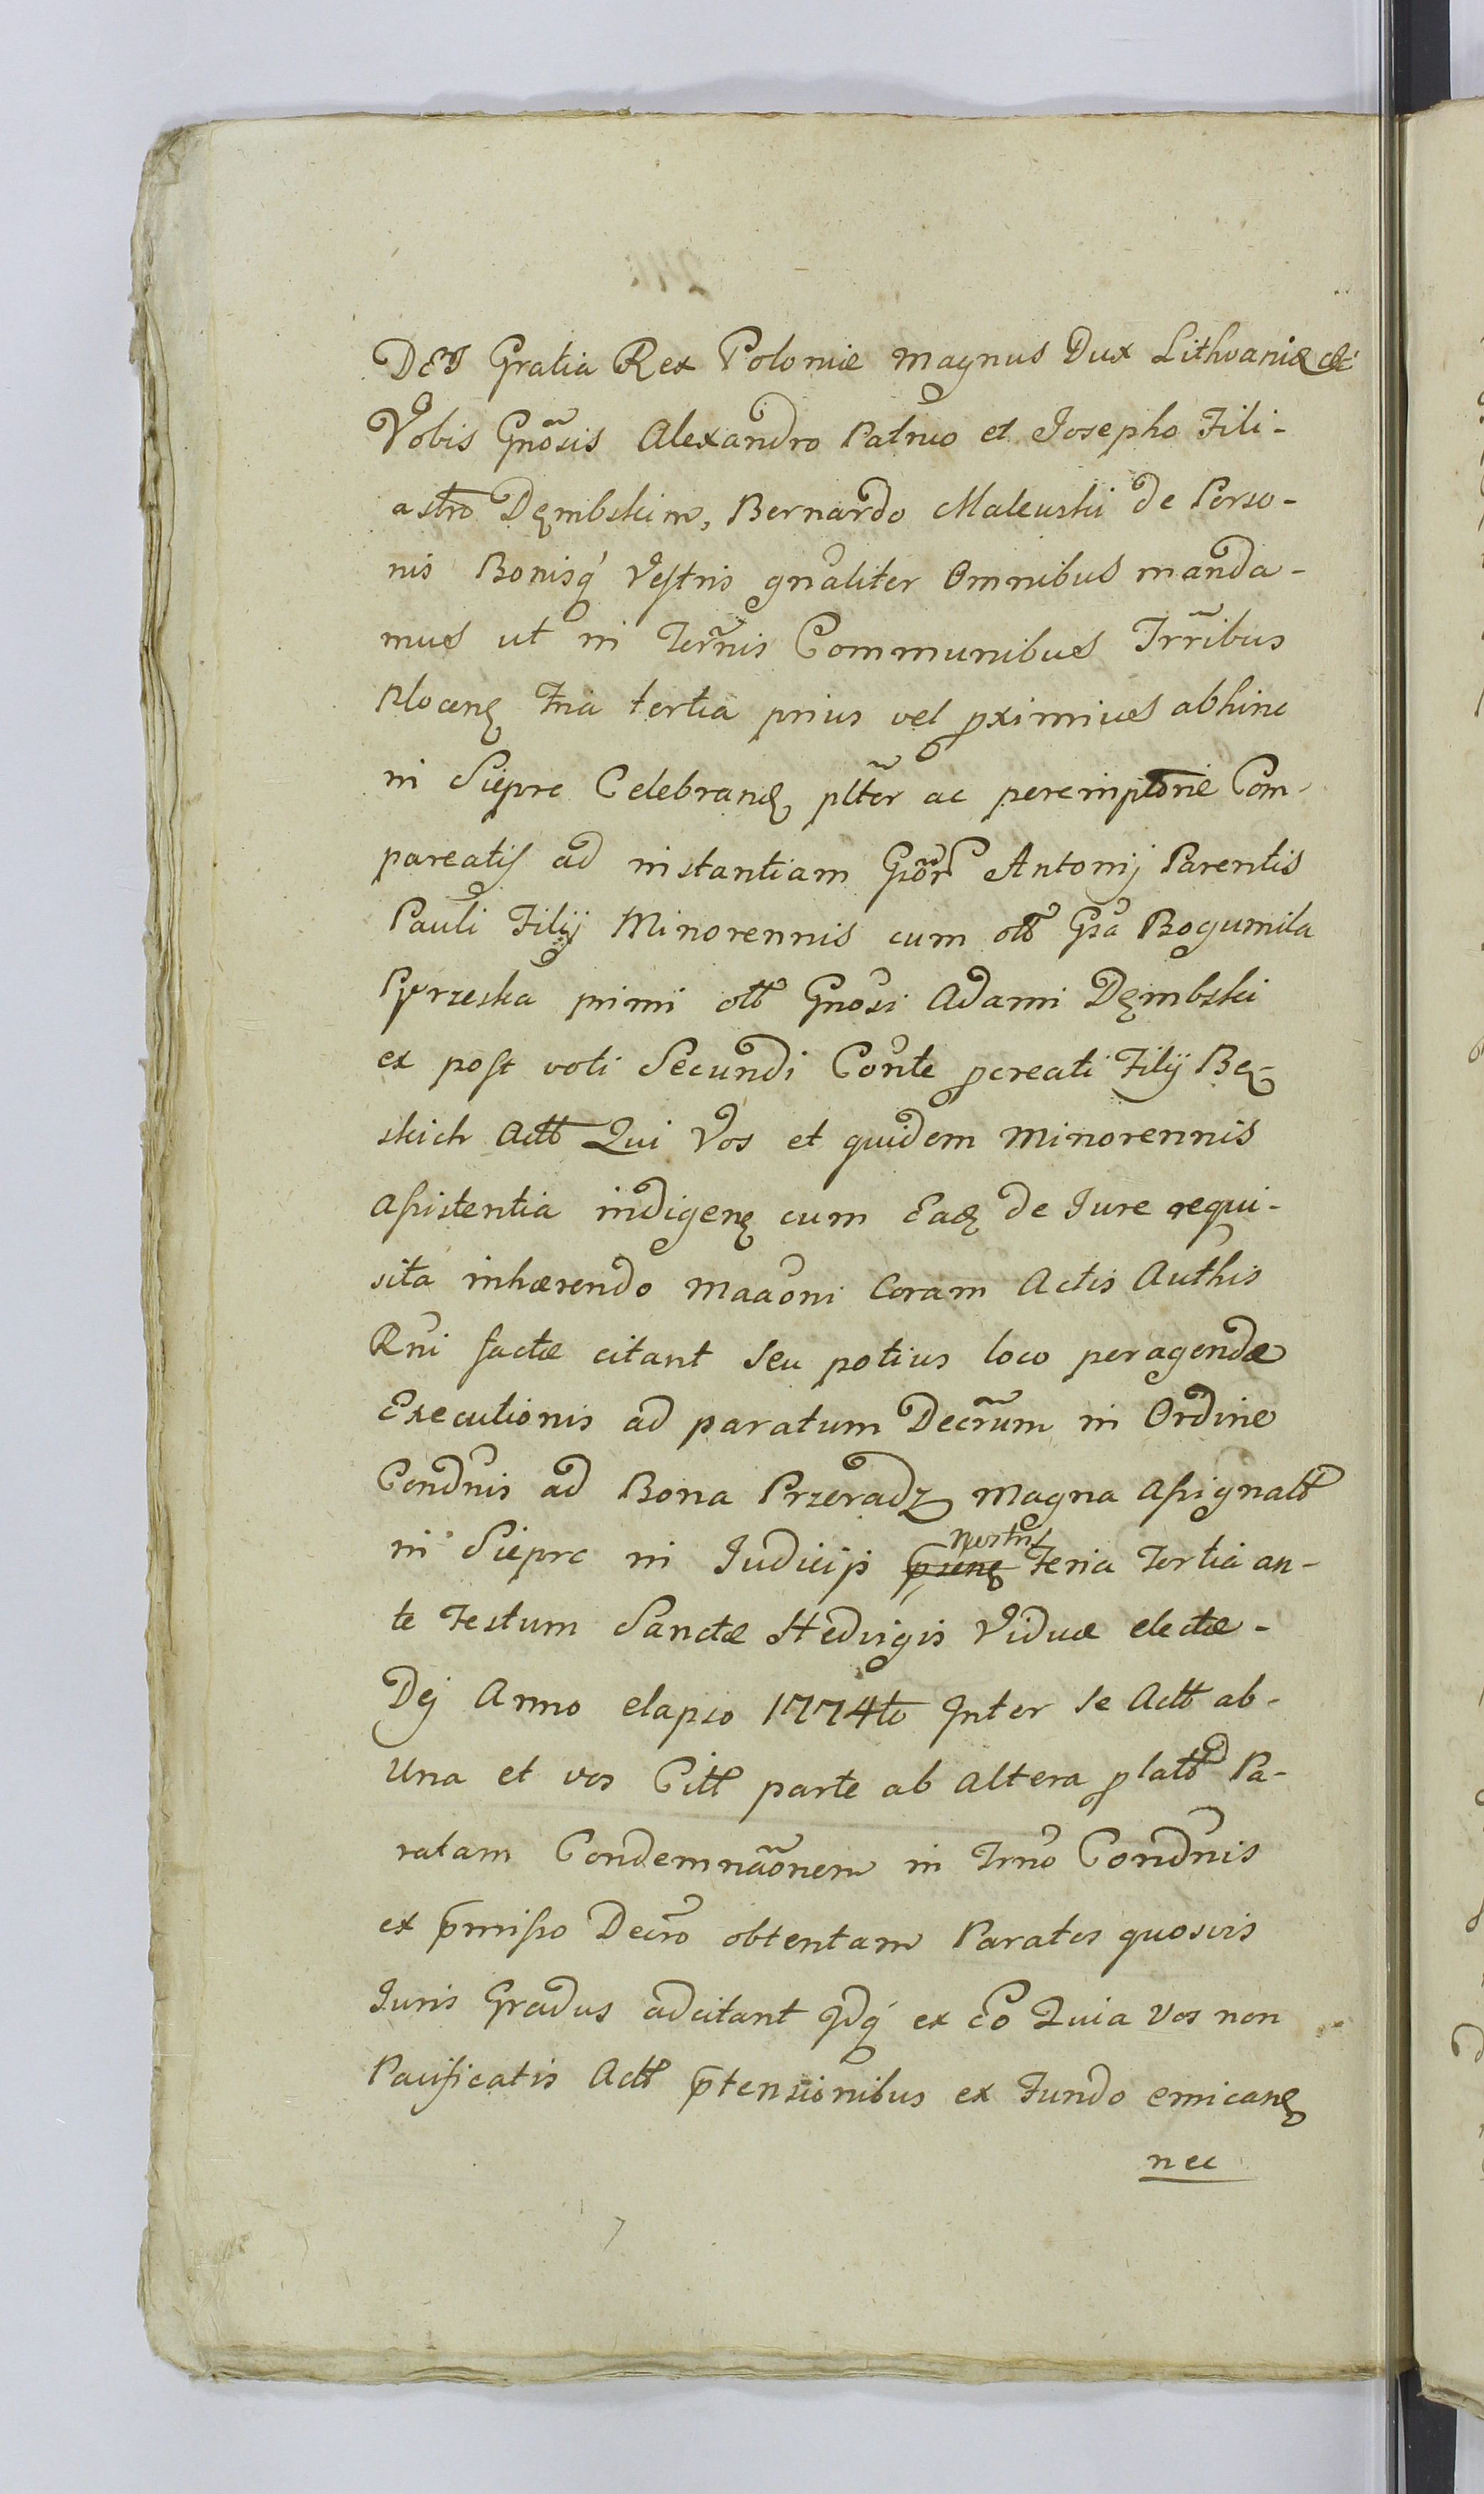 DEI Gratia Rex Poloniæ Magnus Dux Lithvaniæ &c
Vobis Gnosis Alexandro Patruo et Josepho Fili-
astro Dęmbskim, Bernardo Maleuski de Perso-
nis Bonisq́ Vestris gnaliter Omnibus manda-
mus ut in Ternis Communibus Trribus
Plocenę Fria tertia prius vel pximius abhinc
in Sieprc Celebranę plter ac peremptorie Com-
pareatis ad instantiam Antonij Parentis
Pauli Filij Minorennis cum olt Gsa Bogumila
primi olt Gnosi Adami Dęmbski
ex post voti Secundi Conte pcreati Filij Bę-
skich Actt Qui Vos et quidem Minorennis
Assistentia indigenę cum Eadę de Jure requi-
sita inhærendo Maãoni Coram Actis Authis
Rni factæ citant seu potius loco peragendæ
Executionis ad paratum Decrum in Ordine
Condnis ad Bona Przeradz Magna Assignatt
in Sieprc in Judicijs psenę Nostris Feria Tertia an-
te Festum Sanctæ Hedvigis Viduæ electæ-
Dej Anno elapso 1774to Inter se Actt ab-
Una et vos Citt parte ab altera platt Pa-
ratam Condemnãonem in Trno Condnis
ex pmisso Decro obtentam Paratos quosvis
Juris Gradus adcitant Idq́ ex Eo Quia Vos non
Pacificatis Actt ptensionibus ex Fundo emicanę
nec